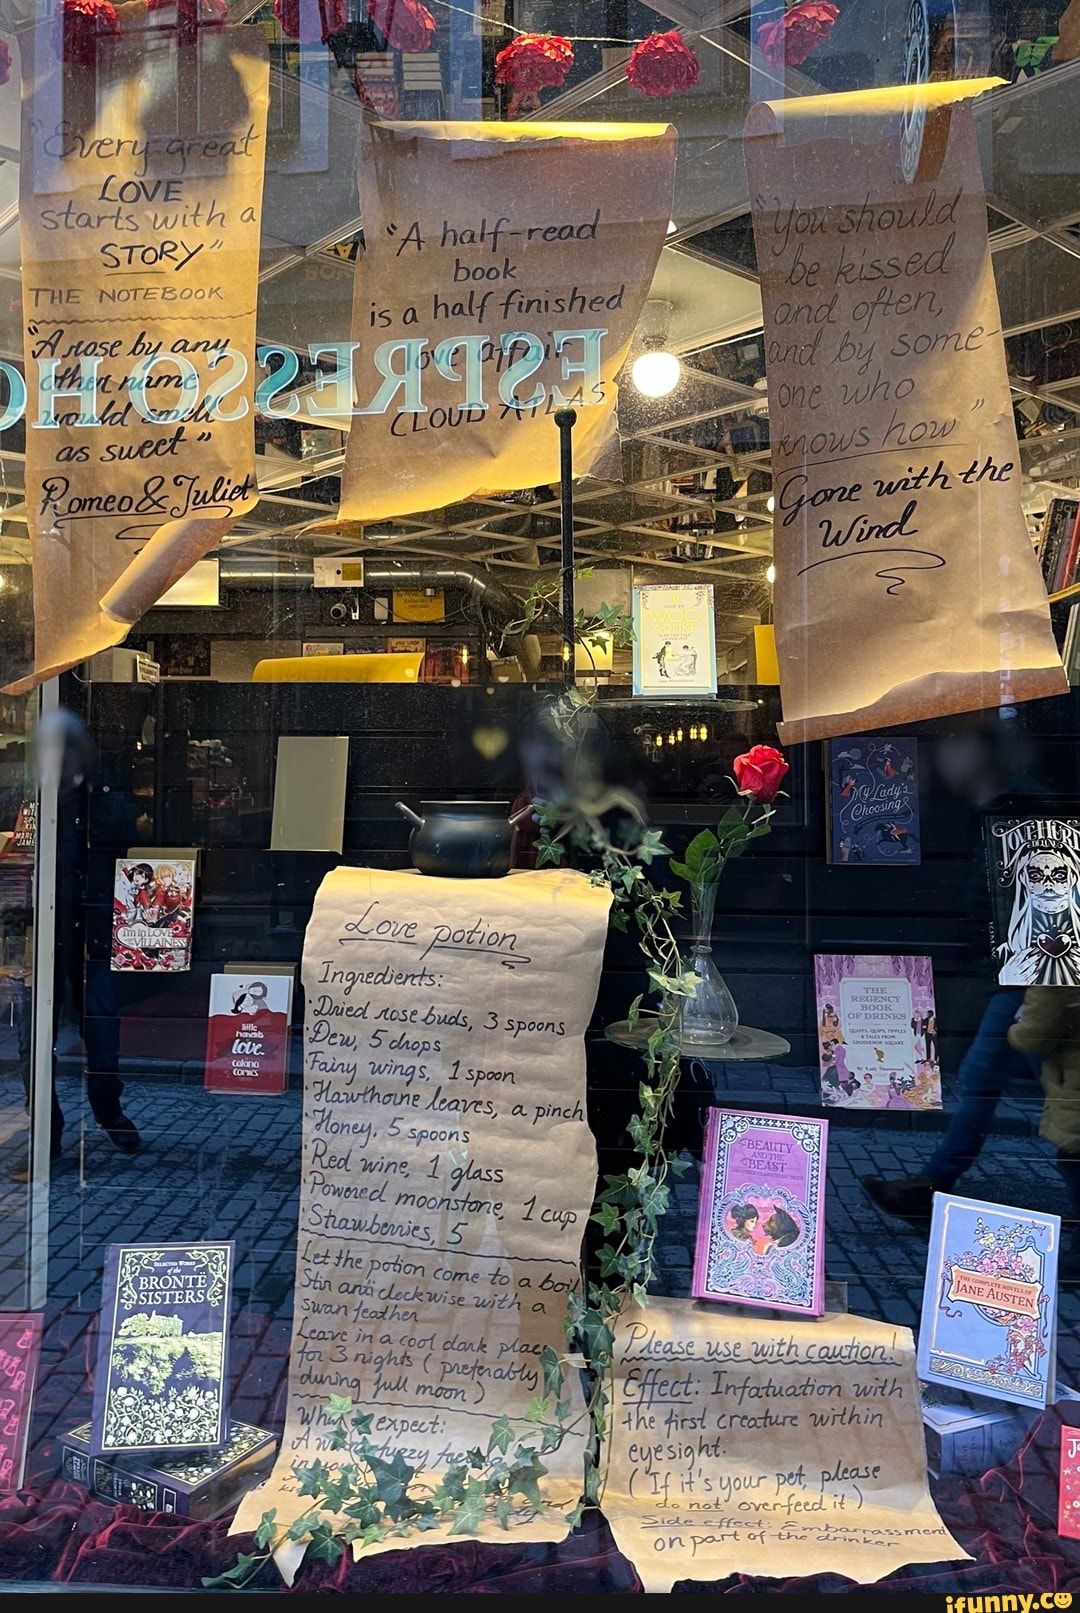 "Every great
LOVE
starts with a
STORY"
THE NOTEBOOK
"A rose by any
other name
would smell
as sweet"
Romeo & Juliet
"A half-read
book
is a half finished
love affair"
CLOUD ATLAS
"You should
be kissed
and often,
and by some-
one who
knows how"
Gone with the
Wind
ESPRESSO H
My Lady's
Choosing
LOVE HURTS
DELUXE
I'm in LOVE
VILLAINESS
little
moments
love.
catana
comics
THE
REGENCY
BOOK
OF DRINKS
Love potion
Ingredients:
Dried rose buds, 3 spoons
Dew, 5 drops
Fairy wings, 1 spoon
Hawthorne leaves, a pinch
Honey, 5 spoons
Red wine, 1 glass
Powered moonstone, 1 cup
Strawberries, 5
Let the potion come to a boil
Stir anti clockwise with a
swan feather
Leave in a cool dark place
for 3 nights (preferably
during full moon)
expect:
A fuzzy
in you
BEAUTY
AND THE
BEAST
SELECTED WORKS
of the
BRONTË
SISTERS
THE COMPLETE NOVELS OF
JANE AUSTEN
Please use with caution!
Effect: Infatuation with
the first creature within
eyesight.
(If it's your pet, please
do not overfeed it)
Side effect: Embarrassment
on part of the drinker
ifunny.co